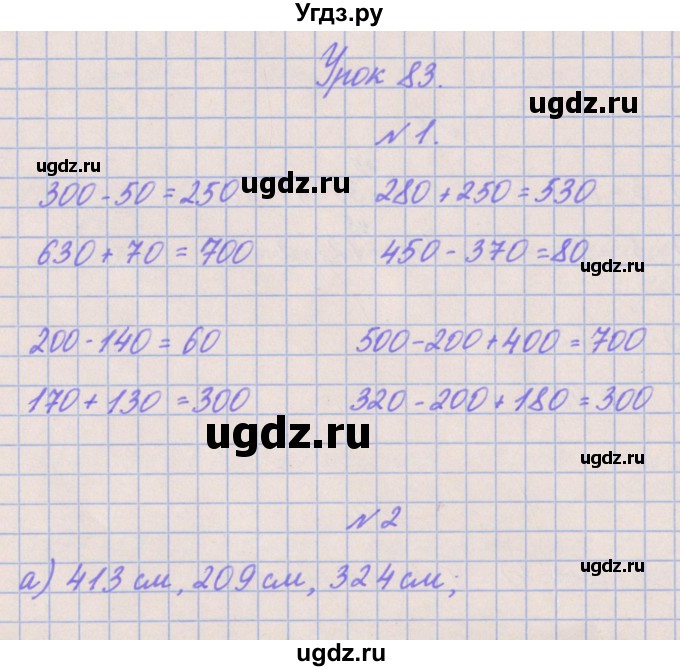 Угдз.ру
Урок 83.
ugdz.ru
№ 1.
ugdz.ru
ugdz.ru
300 - 50 = 250 280 + 250 = 530
630 + 70 = 700 450 - 370 = 80
ugdz.ru
200 - 140 = 60 500 - 200 + 400 = 700
170 + 130 = 300 320 - 200 + 180 = 300
ugdz.ru
ugdz.ru
№ 2
ugdz.ru
а) 413 см, 209 см, 324 см;